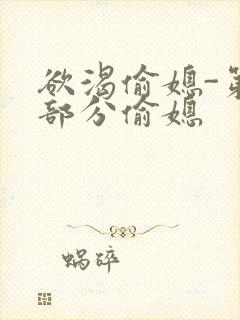 欲渴偷媳-第
部分偷媳
蜗碎